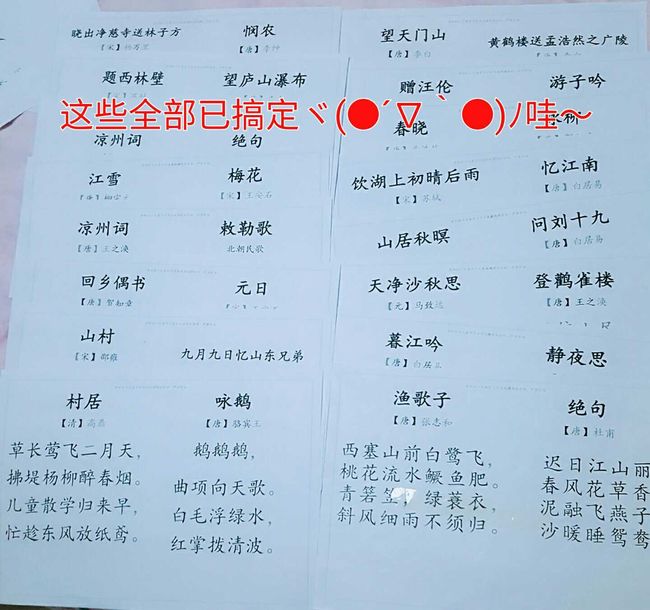 晓出净慈寺送林子方
【宋】杨万里
悯农
【唐】李绅
题西林壁
望庐山瀑布
凉州词
绝句
江雪
梅花
【宋】王安石
凉州词
【唐】王之涣
敕勒歌
北朝民歌
回乡偶书
【唐】贺知章
元日
山村
【宋】邵雍
九月九日忆山东兄弟
村居
【清】高鼎
草长莺飞二月天,
拂堤杨柳醉春烟。
儿童散学归来早,
忙趁东风放纸鸢。
咏鹅
【唐】骆宾王
鹅鹅鹅,
曲项向天歌。
白毛浮绿水,
红掌拨清波。
望天门山
【唐】李白
黄鹤楼送孟浩然之广陵
赠汪伦
游子吟
春晓
饮湖上初晴后雨
【宋】苏轼
忆江南
【唐】白居易
山居秋暝
问刘十九
【唐】白居易
天净沙秋思
【元】马致远
登鹳雀楼
【唐】王之涣
暮江吟
【唐】白居易
静夜思
渔歌子
【唐】张志和
西塞山前白鹭飞,
桃花流水鳜鱼肥。
青箬笠,绿蓑衣,
斜风细雨不须归。
绝句
【唐】杜甫
迟日江山丽
春风花草香
泥融飞燕子
沙暖睡鸳鸯
这些全部已搞定ヾ(●´∇｀●)ﾉ哇～